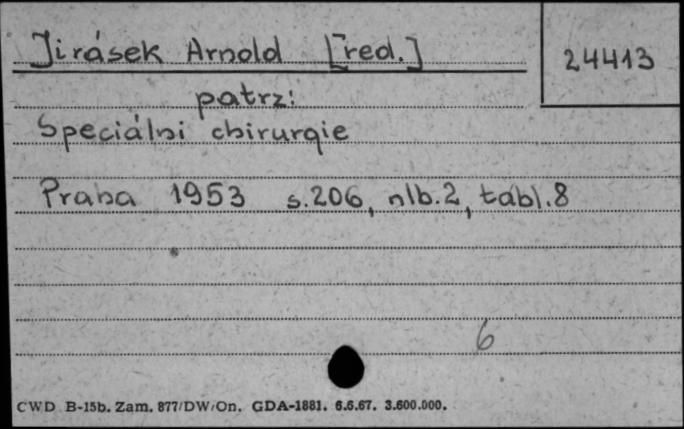 Jirásek Arnold [red.]
24413
patrz:
Speciálni chirurgie
Praha 1953 s.206, nlb.2, tabl.8
6
CWD B-15b. Zam. 877/DW/On. GDA-1881. 6.6.67. 3.600.000.